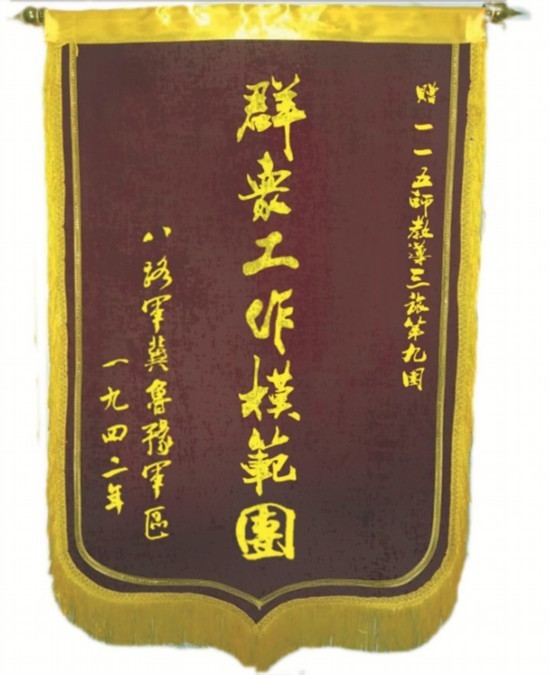 贈一一五師教導三旅第九团
群衆工作模範團
八路军冀魯豫军區
一九四二年